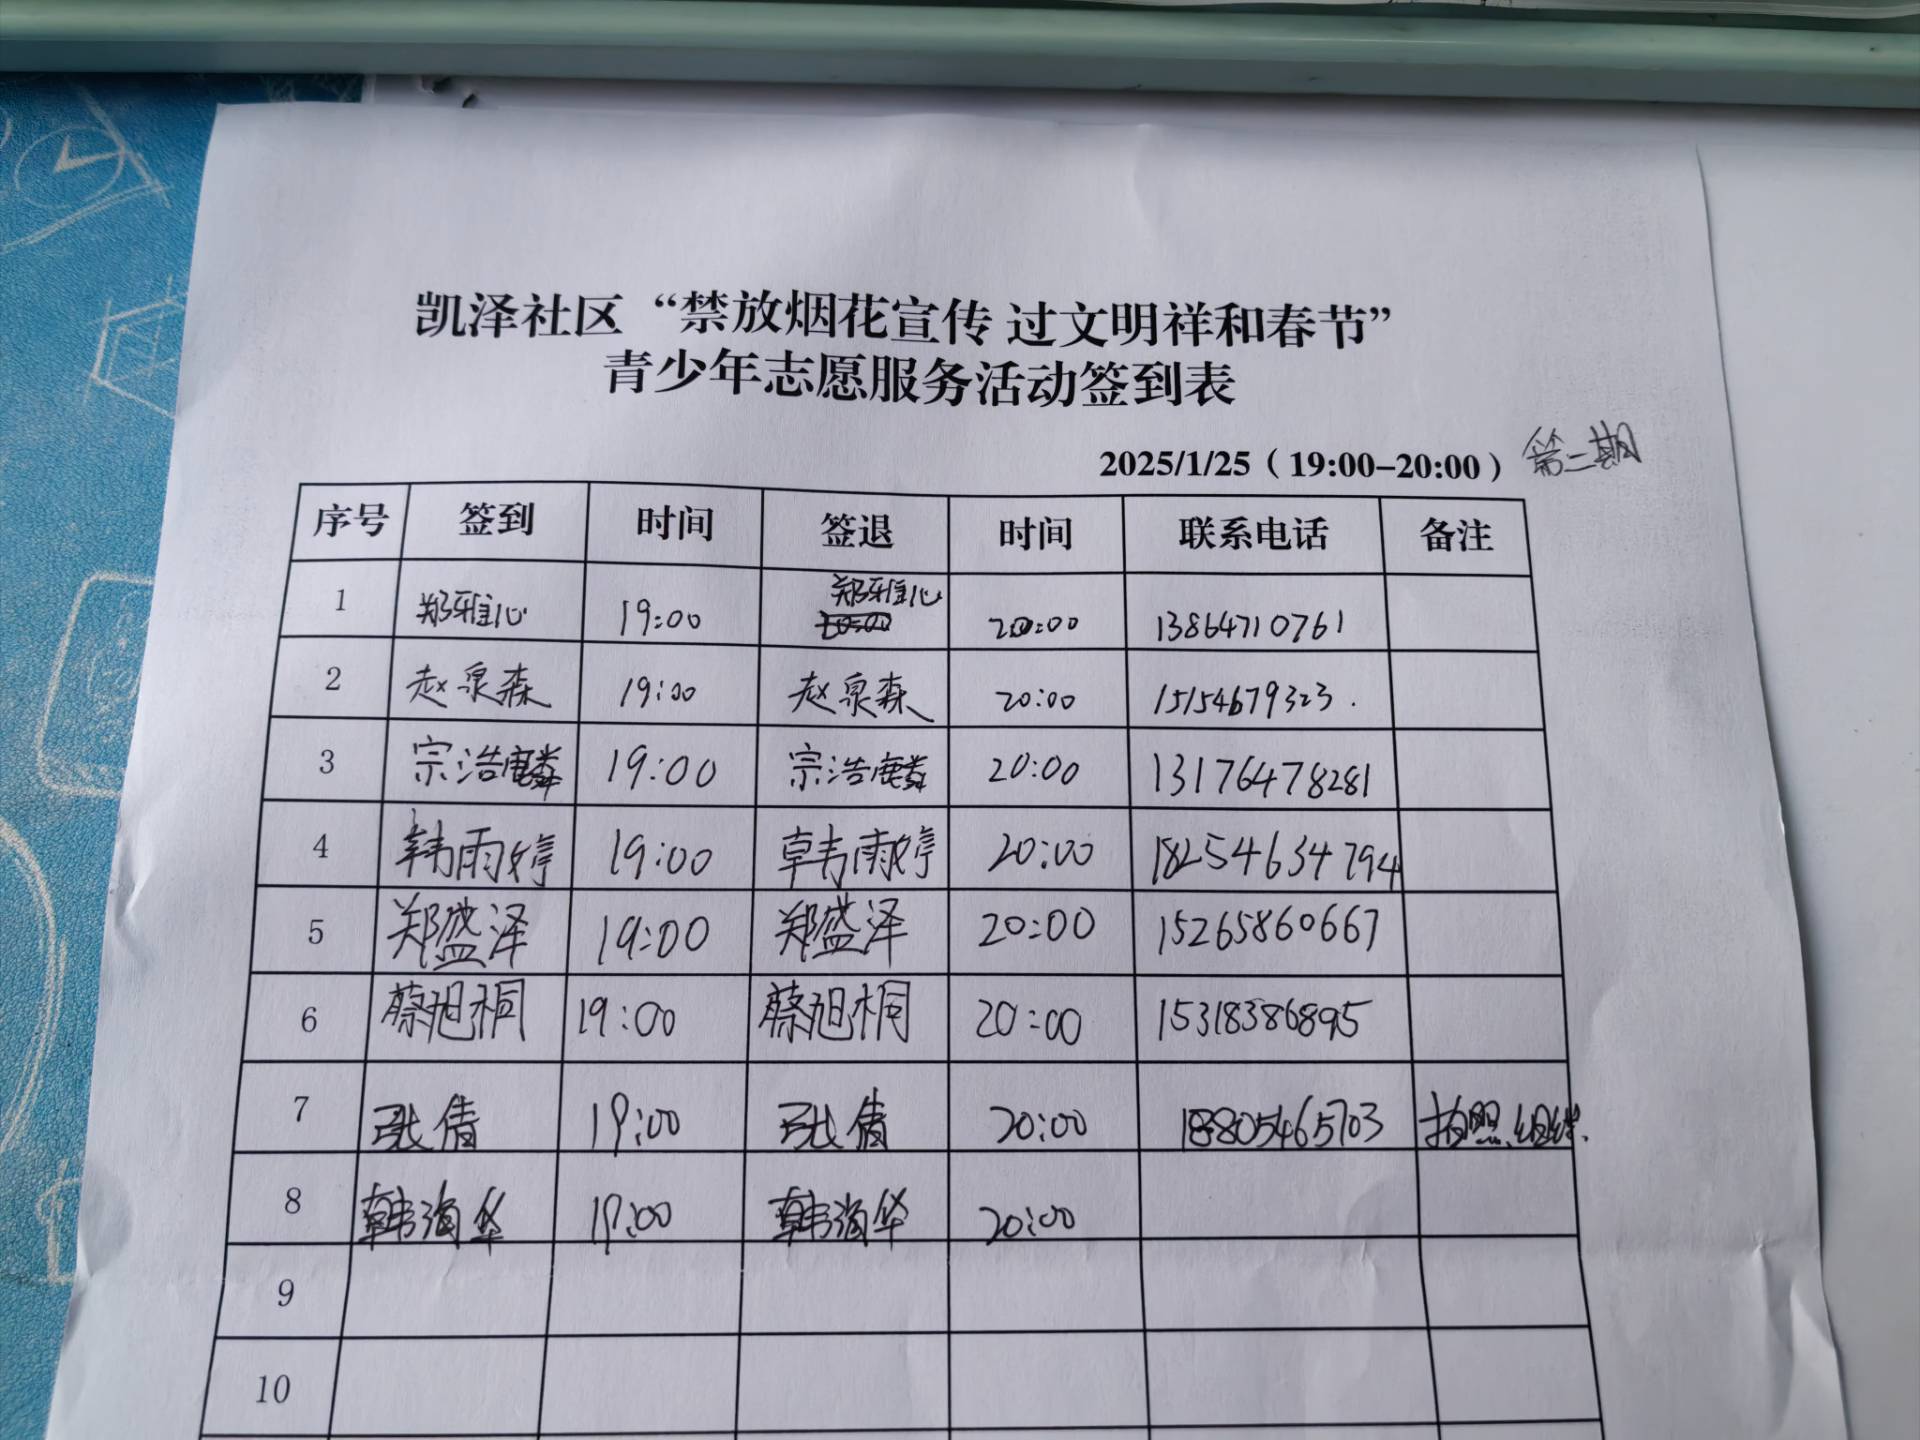 凯泽社区“禁放烟花宣传 过文明祥和春节”
青少年志愿服务活动签到表
2025/1/25（19:00-20:00） 第二期
序号 签到 时间 签退 时间 联系电话 备注
1 郑雅心 19:00 郑雅心 20:00 13864710761
2 赵泉森 19:00 赵泉森 20:00 15154679323.
3 宗浩麟 19:00 宗浩麟 20:00 13176478281
4 韩雨婷 19:00 韩雨婷 20:00 18254634794
5 郑盛泽 19:00 郑盛泽 20:00 15265860667
6 蔡旭桐 19:00 蔡旭桐 20:00 15318386895
7 张倩 19:00 张倩 20:00 18805465703 拍照、组织.
8 韩海华 19:00 韩海华 20:00
9
10